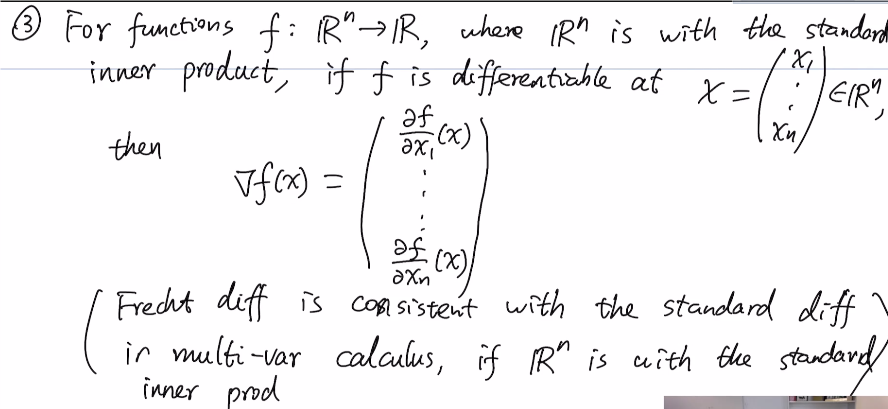 ③ For functions f: ℝⁿ→ℝ, where ℝⁿ is with the standard
inner product, if f is differentiable at x = (x₁ ⋮ xₙ) ∈ ℝⁿ,
then
∇f(x) = (∂f/∂x₁ (x) ⋮ ∂f/∂xₙ (x))
(Frecht diff is consistent with the standard diff
in multi-var calculus, if ℝⁿ is with the standard)
inner prod